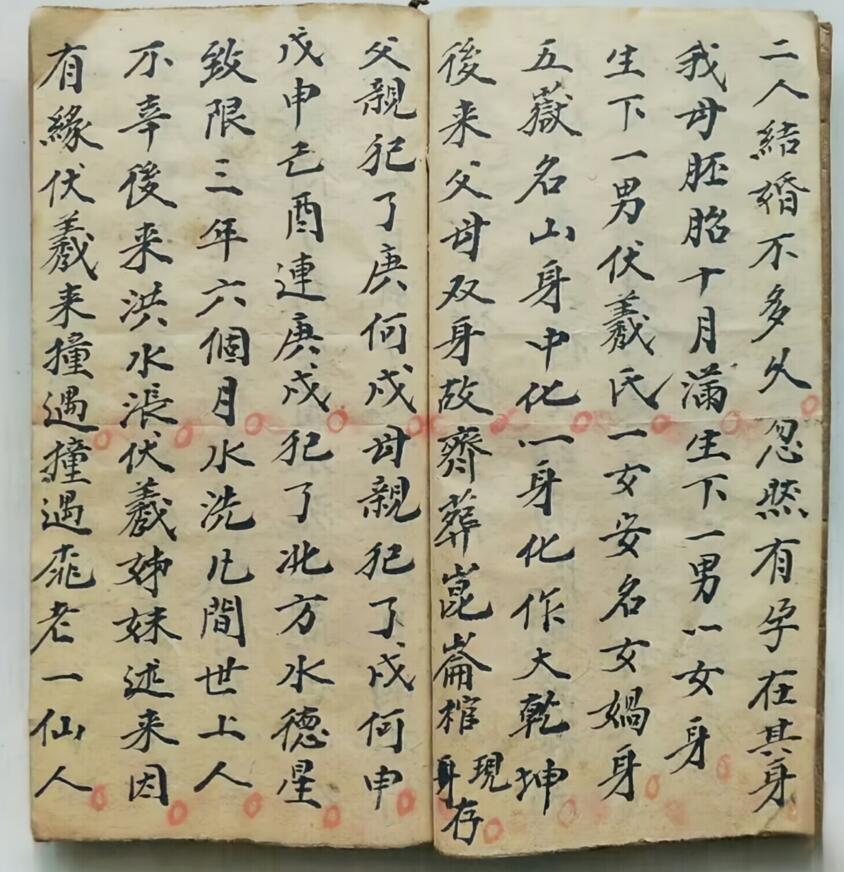 二人結婚不多久忽然有孕在其身
我母胚胎十月滿生下一男一女身
生下一男伏羲氏一女安名女媧身
五嶽名山身中化一身化作大乾坤
後来父母双身故齊葬崑崙棺現身存
父親犯了庚何戍母親犯了戍何申
戊申己酉連庚戍犯了北方水德星
致限三年六個月水洗凡間世上人
不幸後来洪水漲伏羲姊妹述来因
有緣伏羲来撞遇撞遇老一仙人